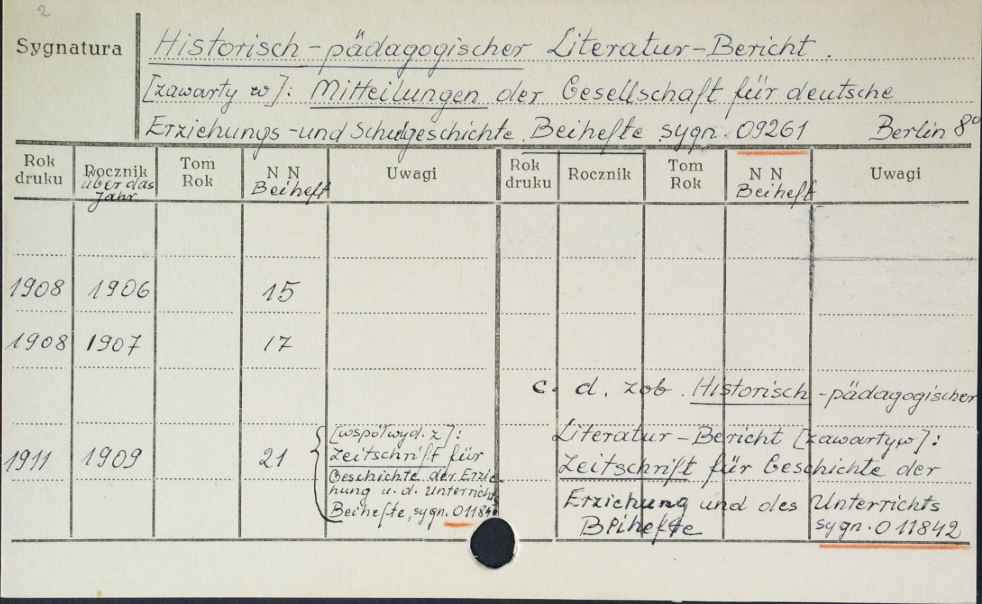 2
Sygnatura
Historisch-pädagogischer Literatur-Bericht.
[zawarty w]: Mitteilungen der Gesellschaft für deutsche
Erziehungs-und Schulgeschichte. Beihefte sygn. 09261 Berlin 8°
Rok druku Rocznik über das Jahr Tom Rok N N Beiheft Uwagi Rok druku Rocznik Tom Rok N N Beiheft Uwagi
1908 1906 15
1908 1907 17
1911 1909 21
[współwyd. z]:
Zeitschrift für
Geschichte der Erzie-
hung u. d. Unterrichts
Beihefte, sygn. 011842
c. d. zob. Historisch-pädagogischer
Literatur-Bericht [zawarty w]:
Zeitschrift für Geschichte der
Erziehung und des Unterrichts
Beihefte sygn. 011842